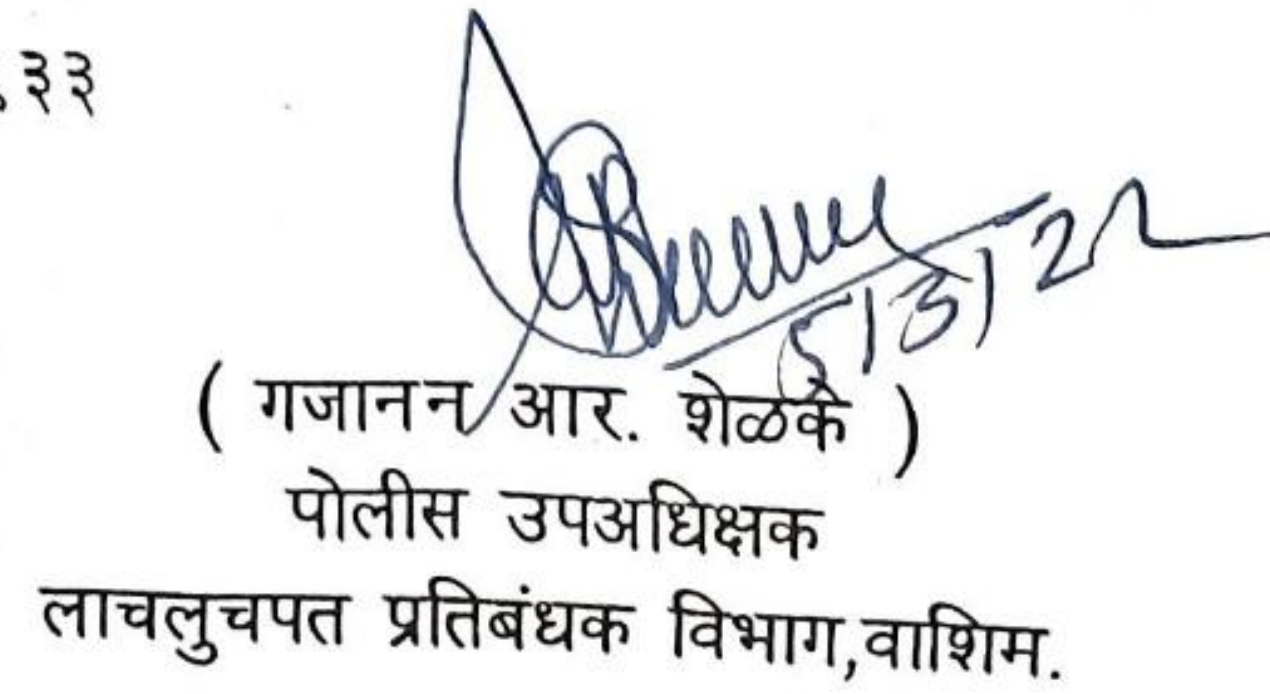 ३३
5/3/22
( गजानन आर. शेळके )
पोलीस उपअधिक्षक
लाचलुचपत प्रतिबंधक विभाग,वाशिम.